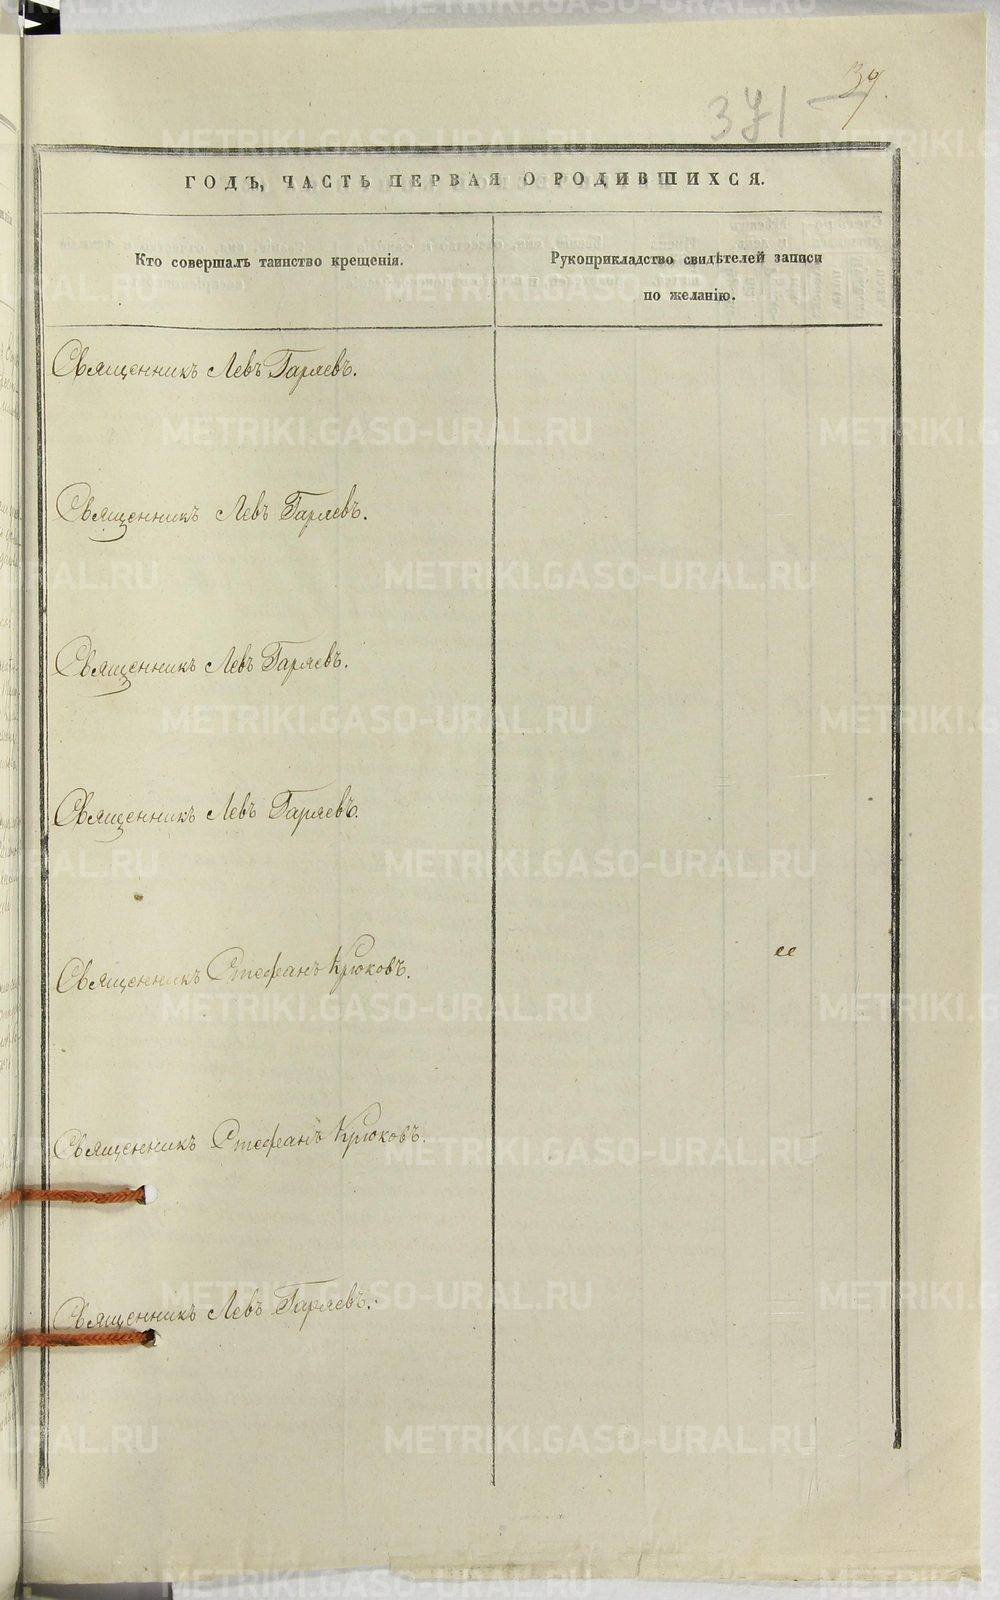 39.
371
ГОДЪ, ЧАСТЬ ПЕРВАЯ О РОДИВШИХСЯ.
Кто совершалъ таинство крещенія.
Рукоприкладство свидѣтелей записи
по желанію.
Священникъ Левъ Гаряевъ.
Священникъ Левъ Гаряевъ.
Священникъ Левъ Гаряевъ.
Священникъ Левъ Гаряевъ.
Священникъ Стефанъ Крюковъ.
Священникъ Стефанъ Крюковъ.
Священникъ Левъ Гаряевъ.
METRIKI.GASO-URAL.RU